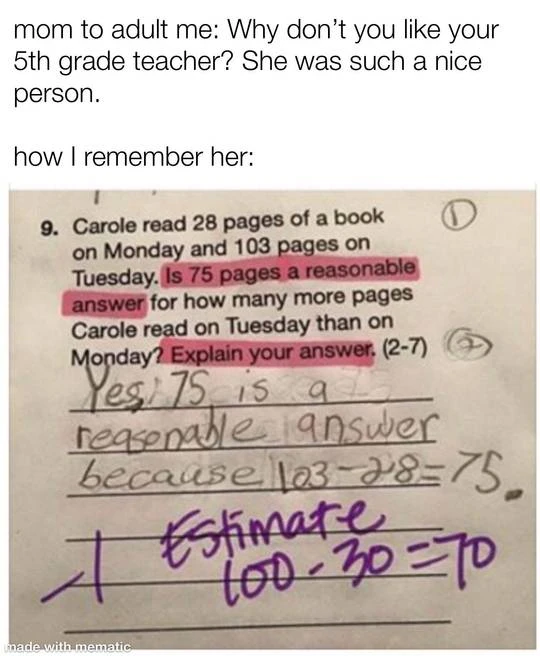 mom to adult me: Why don't you like your
5th grade teacher? She was such a nice
person.
how I remember her:
9. Carole read 28 pages of a book
on Monday and 103 pages on
Tuesday. Is 75 pages a reasonable
answer for how many more pages
Carole read on Tuesday than on
Monday? Explain your answer. (2-7)
1
2
Yes, 75 is a
reasonable answer
because 103-28=75.
Estimate
100-30=70
made with mematic